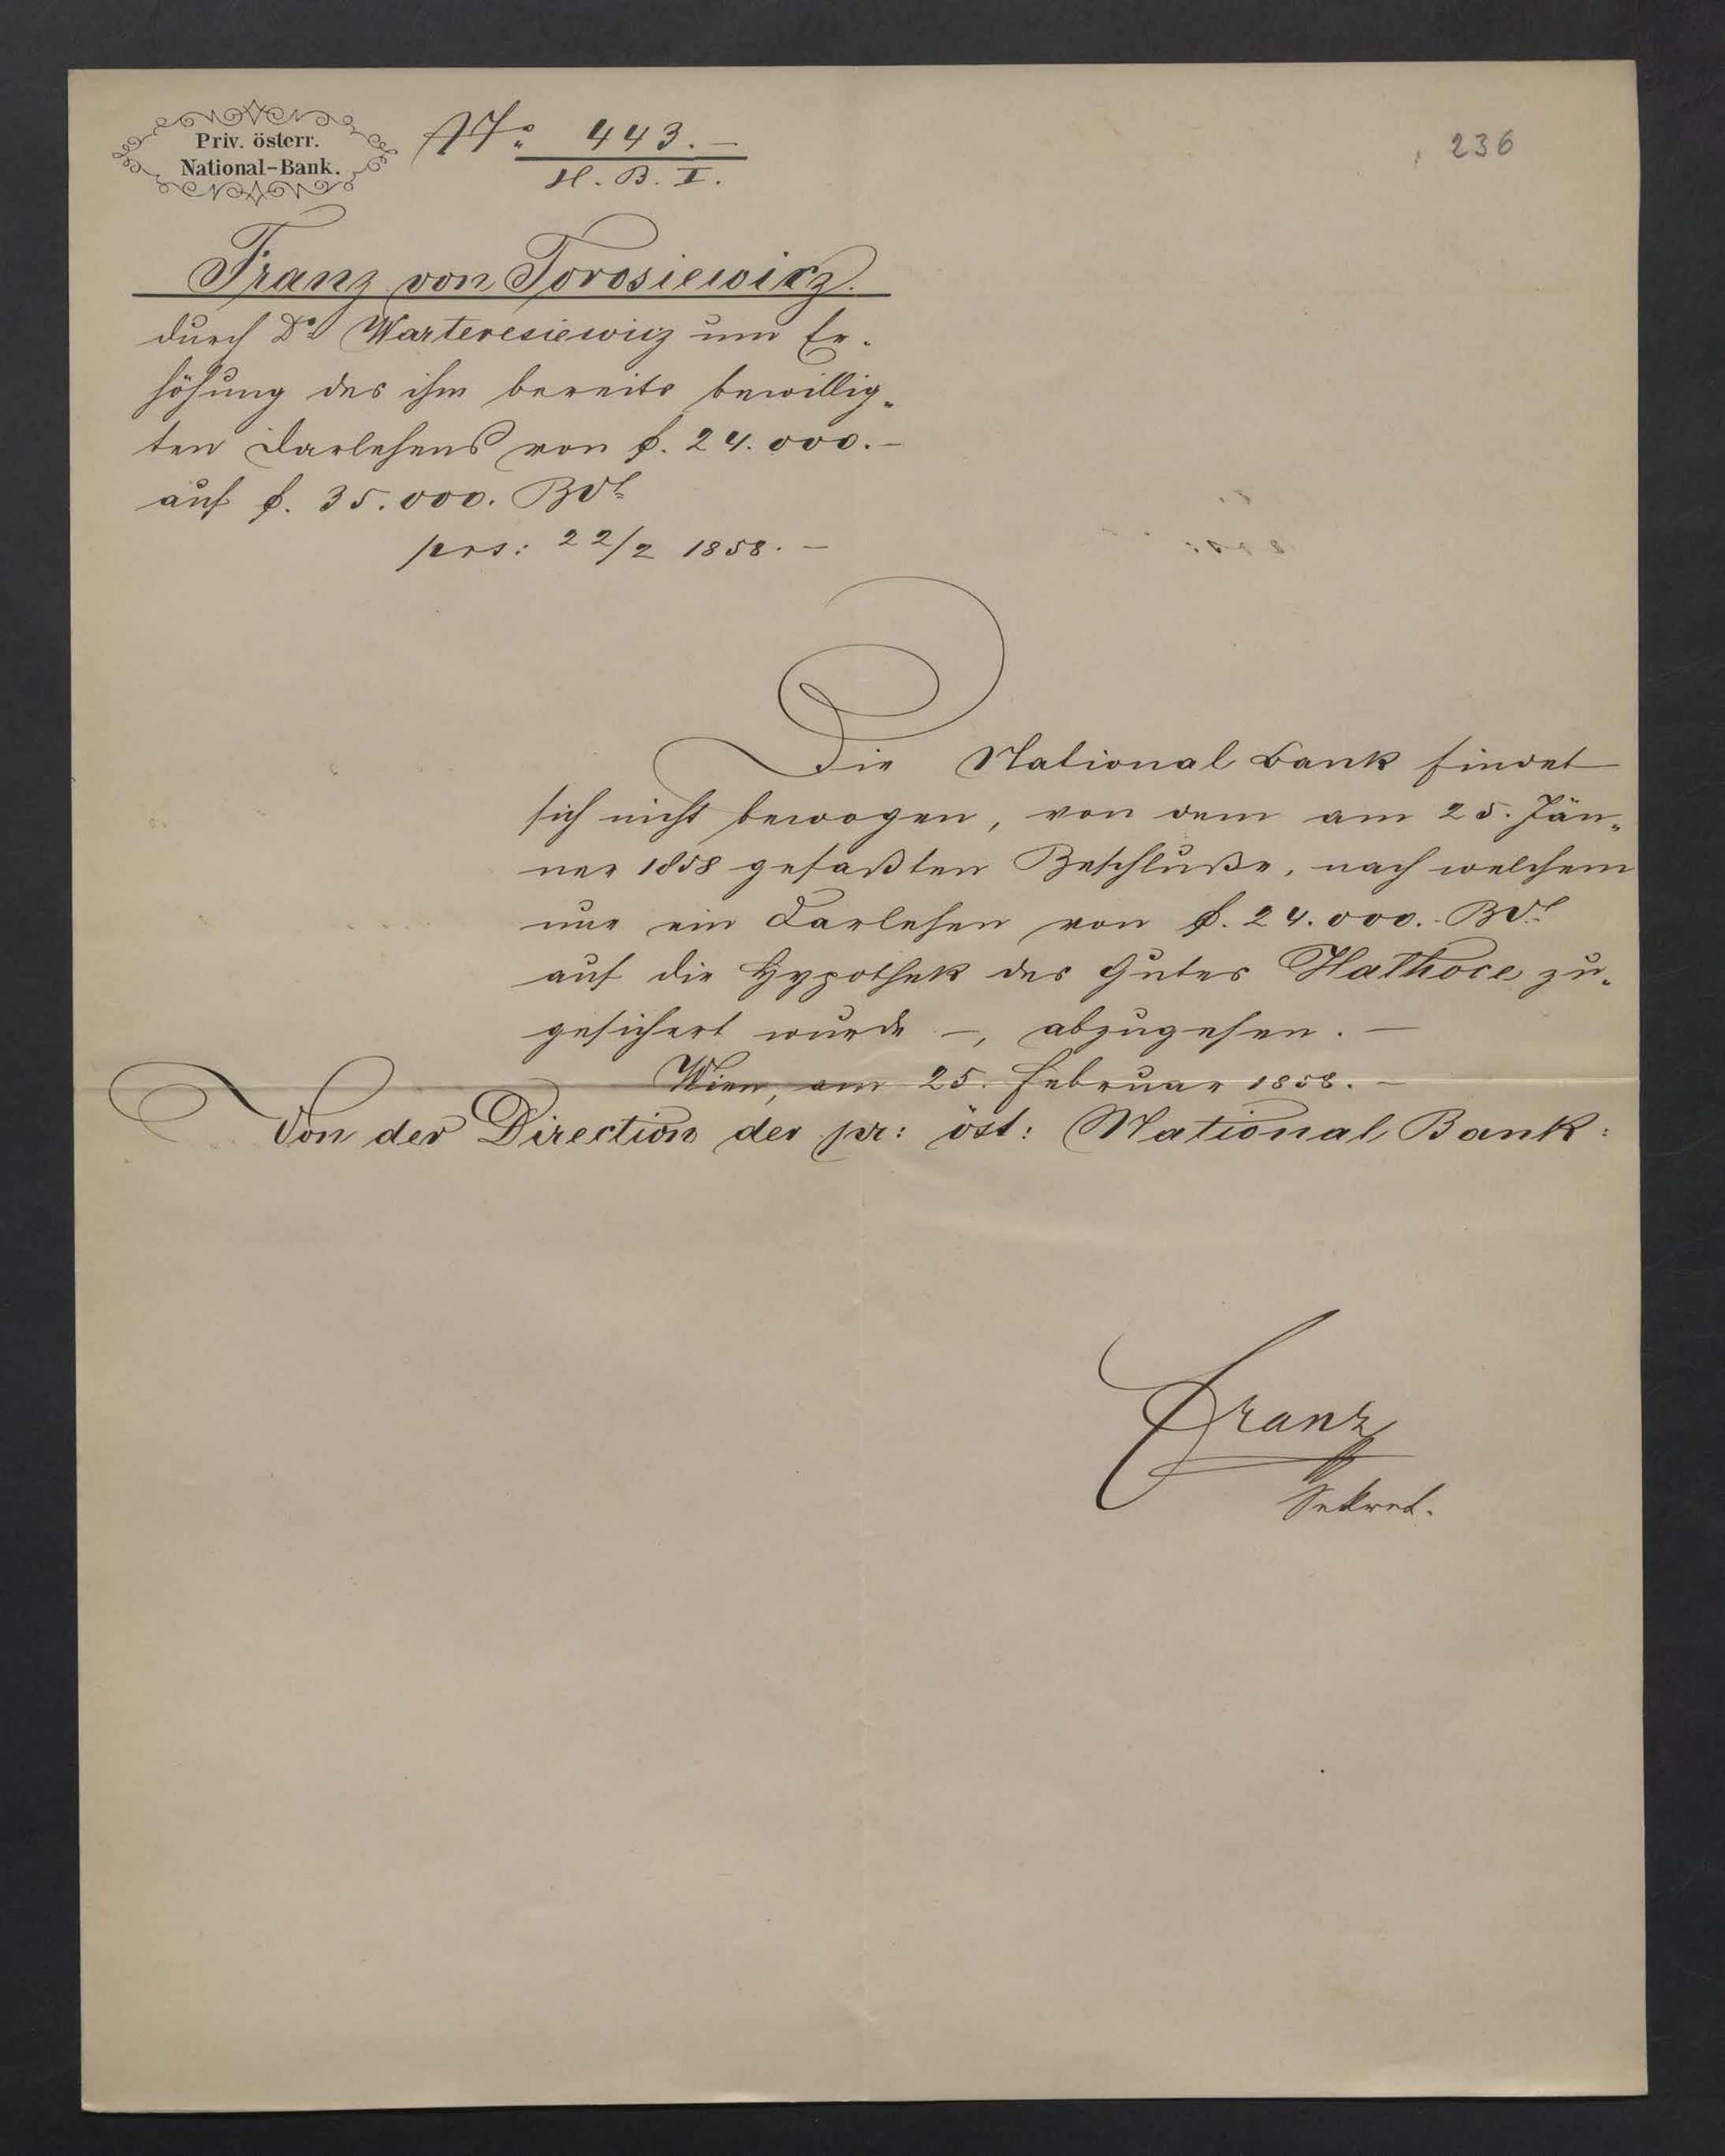 Priv. österr.
National-Bank.
No. 443.–
H. B. I.
236
Franz von Torosiewicz.
durch Dr. Warteresiewicz um Er-
höhung des ihm bereits bewillig-
ten Darlehens von f. 24.000.–
auf f. 35.000. BVl.
prs: 22/2 1858. –
Die National Bank findet
sich nicht bewogen, von dem am 25. Jän-
ner 1858 gefaßten Beschluße, nach welchem
nur ein Darlehen von f. 24.000.- BVl.
auf die Hypothek des Gutes Hathoce zu-
gesichert wurde –, abzugehen. –
Wien, am 25. Februar 1858. –
Von der Direction der pr: öst: National Bank:
Franz
Sekret.